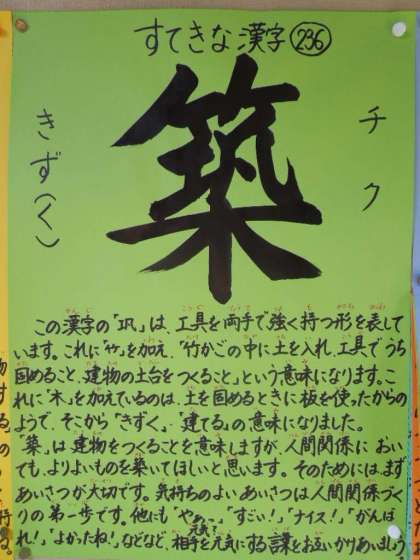 すてきな漢字 236
築
チク
きず(く)
この漢字の「巩」は、工具を両手で強く持つ形を表して
います。これに「竹」を加え、「竹かごの中に土を入れ、工具でうち
固めること、建物の土台をつくること」という意味になります。こ
れに「木」を加えているのは、土を固めるときに板を使ったからの
ようで、そこから「きずく」、「建てる」の意味になりました。
「築」は建物をつくることを意味しますが、人間関係において
ても、よりよいものを築いてほしいと思います。そのためには、まず
あいさつが大切です。気持ちのよいあいさつは人間関係づく
りの第一歩です。他にも「やぁっ。元気?」「すごい!」「ナイス!」「がんば
れ!」「よかったね!」などなど、相手を元気にする言葉をお互いかけあいましょう